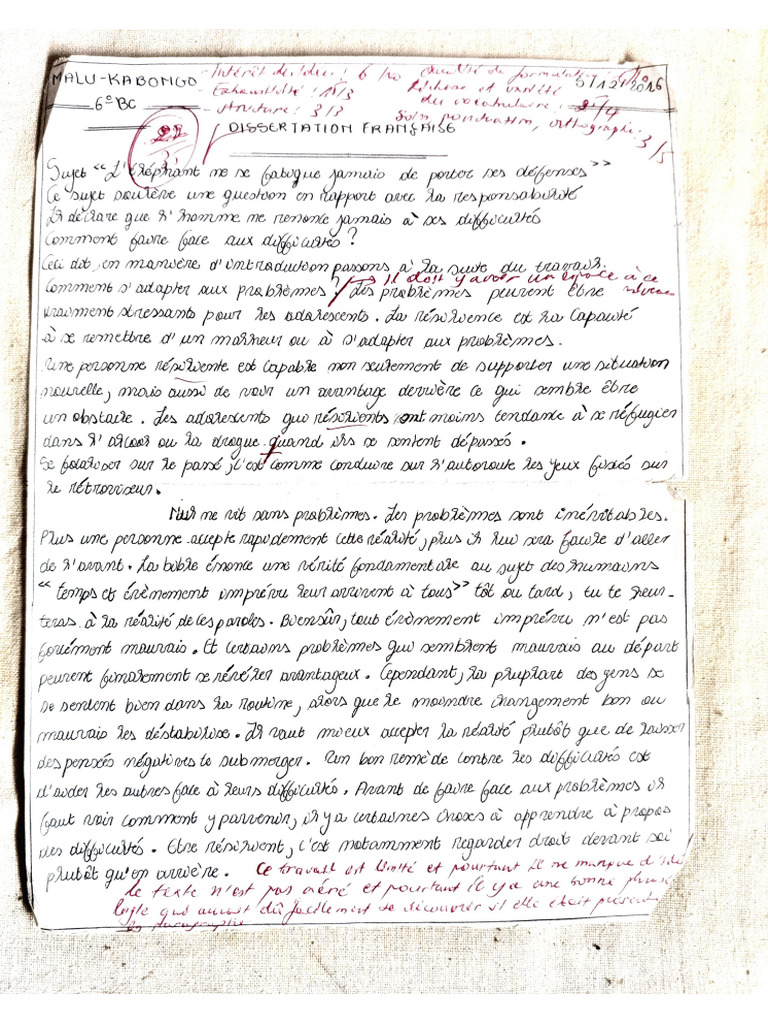 MALU-KABONGO
6° BC
- Intérêt de l'idée : 6 /10
- Exhaustivité : 1,5/3
- structure : 3/3
Qualité de formulation
Richesse et variété
du vocabulaire : 2/4
Soin, ponctuation, orthographe : 3/5
5/12/2016
22
DISSERTATION FRANÇAISE
Sujet "L'éléphant ne se fatigue jamais de porter ses défenses"
Ce sujet soulève une question en rapport avec la responsabilité
Il déclare que l'homme ne renonce jamais à ses difficultés
Comment faire face aux difficultés ?
Ceci dit, en manière d'introduction passons à la suite du travail.
Il doit y avoir un espace à ce niveau
Comment s'adapter aux problèmes ? Les problèmes peuvent être
vraiment stressants pour les adolescents. La résilience est la capacité
à se remettre d'un malheur ou à s'adapter aux problèmes.
Une personne résiliente est capable non seulement de supporter une situation
nouvelle, mais aussi de voir un avantage derrière ce qui semble être
un obstacle. Les adolescents quo résilients ont moins tendance à se réfugier
dans l'alcool ou la drogue quand ils se sentent dépassés.
Se focaliser sur le passé, c'est comme conduire sur l'autoroute les yeux fixés sur
le rétroviseur.
Nul ne vit sans problèmes. Les problèmes sont inévitables.
Plus une personne accepte rapidement cette réalité, plus il lui sera facile d'aller
de l'avant. La bible énonce une vérité fondamentale au sujet des humains
"temps et évènement imprévu leur arrivent à tous" tôt ou tard, tu te heur-
teras à la réalité de ces paroles. Biensûr, tout évènement imprévu n'est pas
forcément mauvais. Et certains problèmes qui semblent mauvais au départ
peuvent finalement se révéler avantageux. Cependant, la pluphart des gens se
se sentent bien dans la routine, alors que le moindre changement bon ou
mauvais les déstabilise. Il vaut mieux accepter la réalité plutôt que de laisser
des pensés négatives te submerger. Un bon remède contre les difficultés est
d'aider les autres face à leurs difficultés. Avant de faire face aux problèmes il
faut voir comment y parvenir, il y a certaines choses à apprendre à propos
des difficultés. Etre résilient, c'est notamment regarder droit devant soi
plutôt qu'en arrière.
Ce travail est limité et pourtant il ne manque d'idé
le texte n'est pas aéré et pourtant il y a une bonne phrase
logle qui aurait dû facilement se découvrir si elle était présenté
en paragraphe